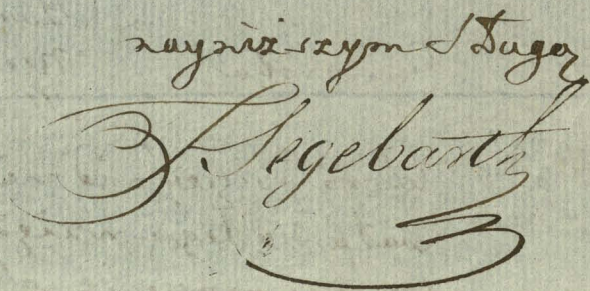 nayniższym Sługą
F Segebarth